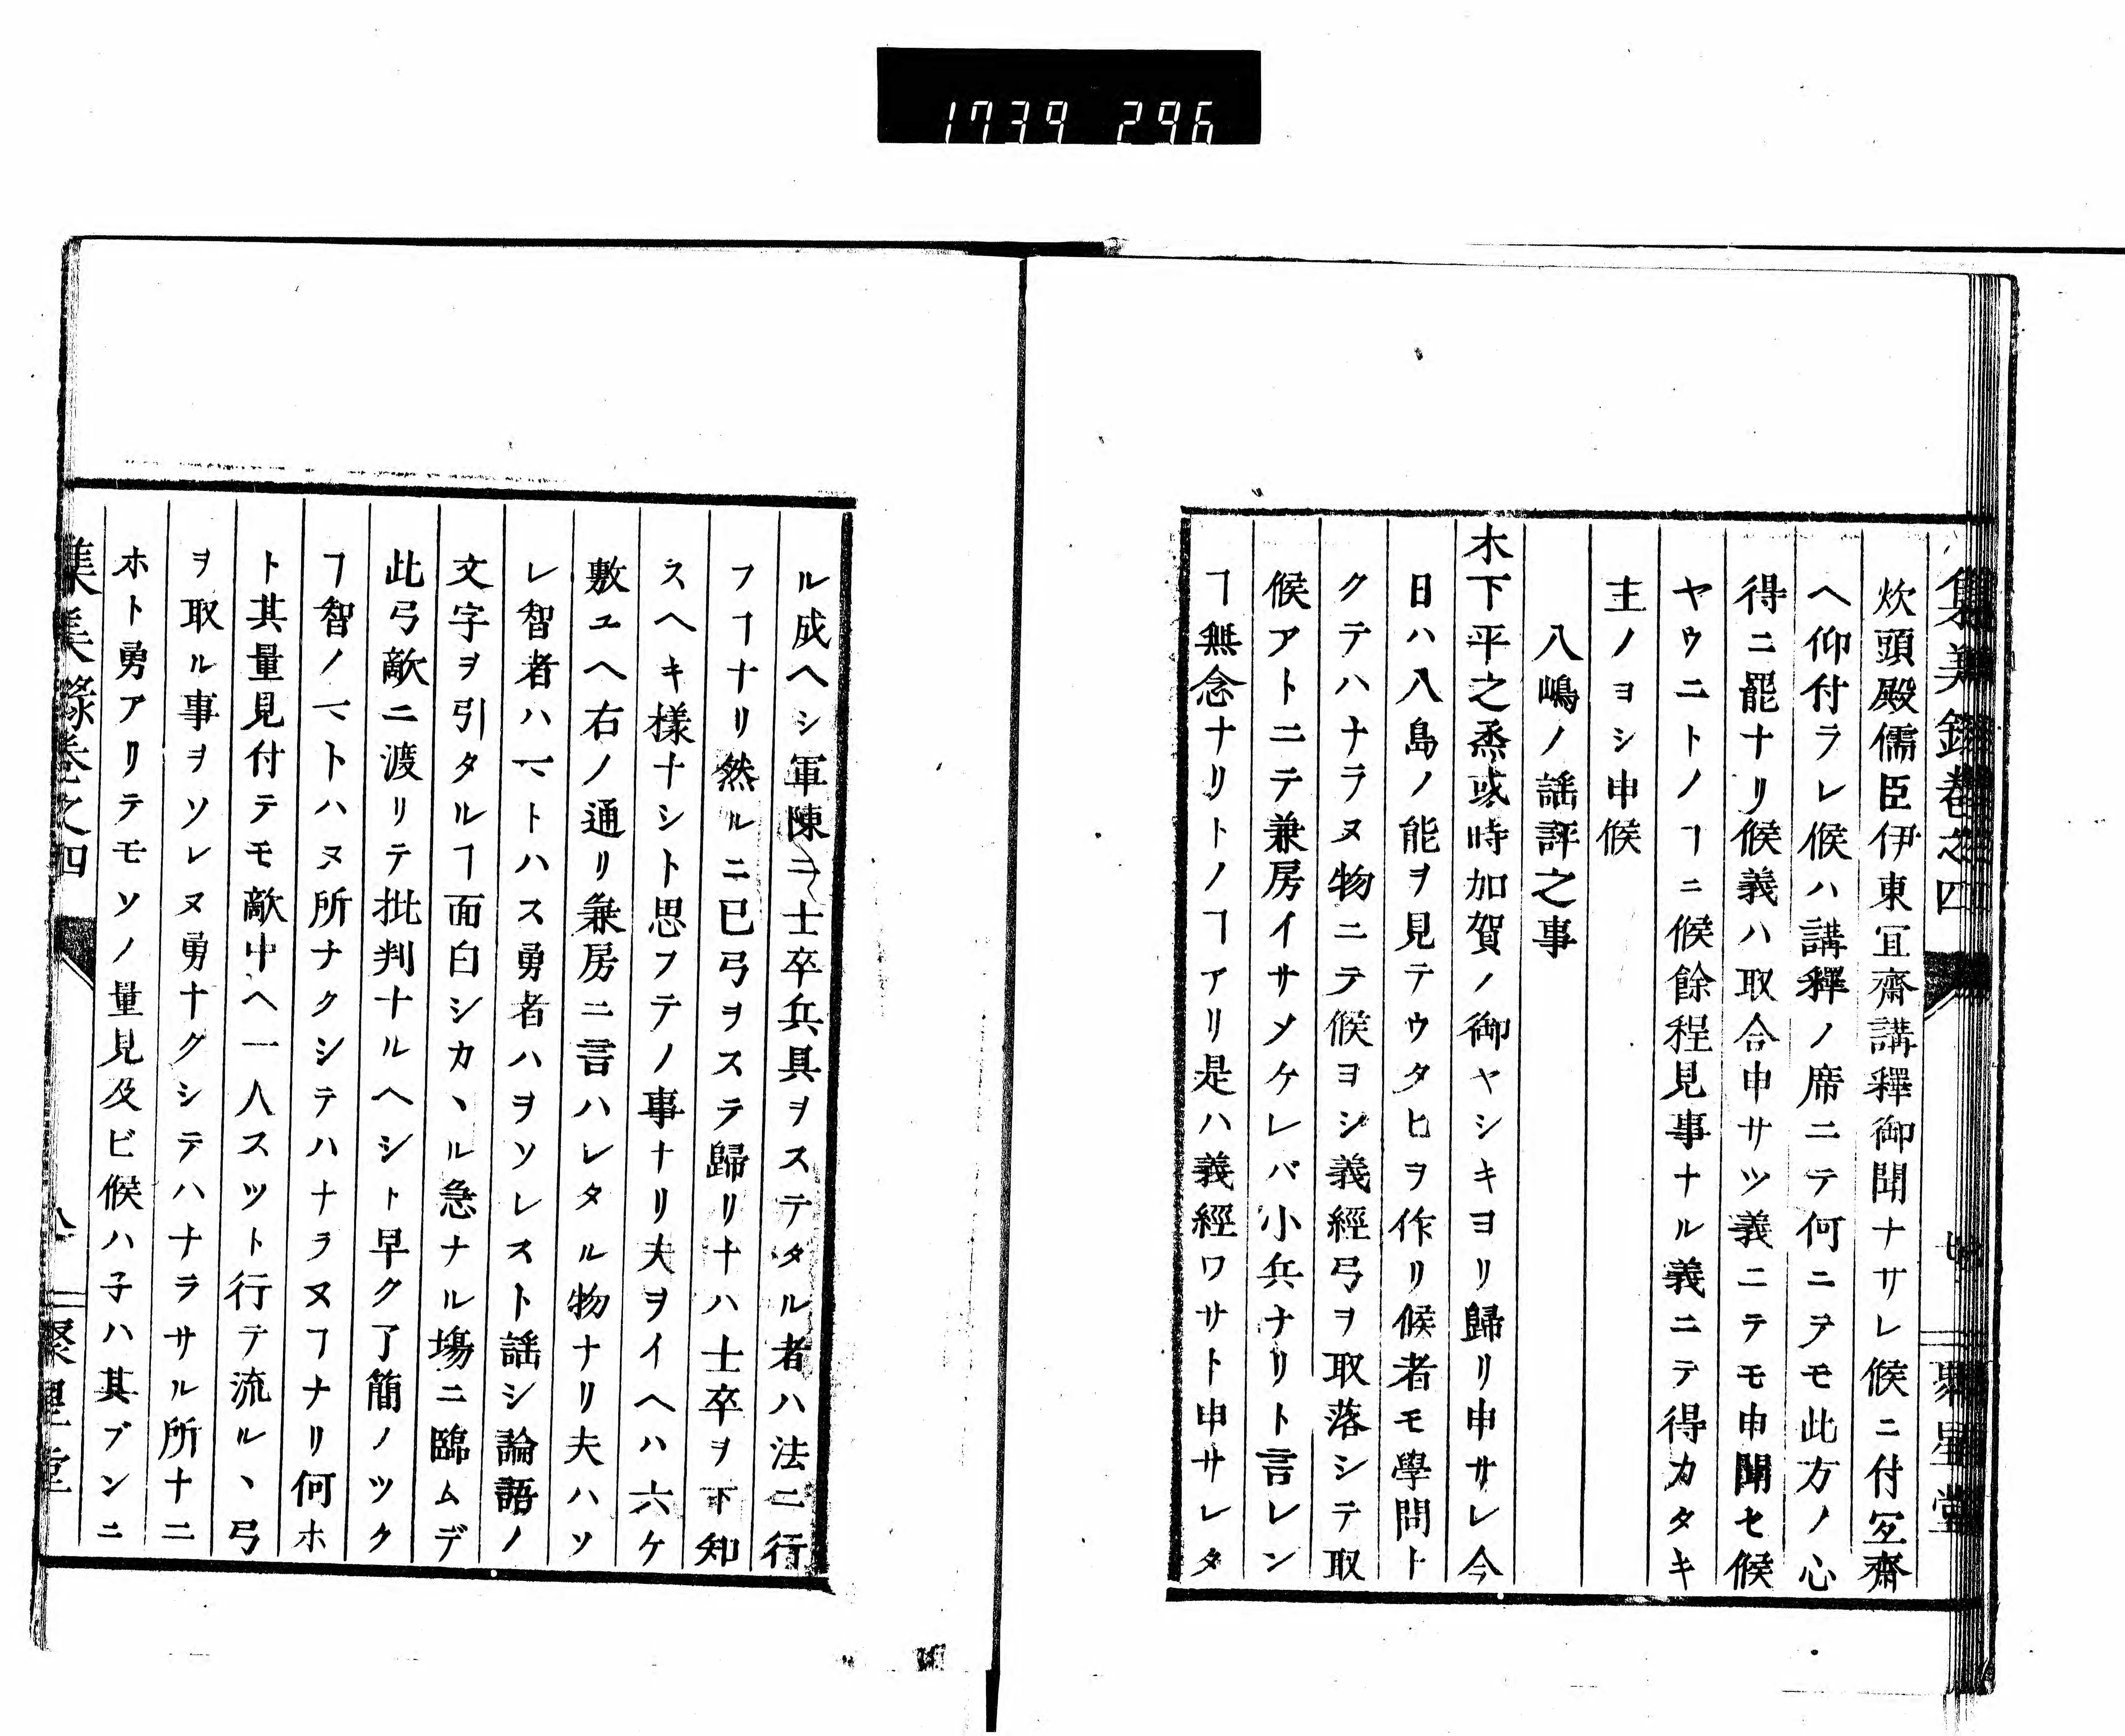 1739 296
集義録巻之四
七
聚星堂
炊頭殿儒臣伊東冝齋講釋御聞ナサレ候ニ付冝齋
ヘ仰付ラレ候ハ講釋ノ席ニテ何ニテモ此方ノ心
得ニ罷ナリ候義ハ取合申サツ義ニテモ申聞セ候
ヤウニトノヿニ候餘程見事ナル義ニテ得カタキ
主ノヨシ申候
八嶋ノ謡評之事
木下平之烝或時加賀ノ御ヤシキヨリ歸リ申サレ今
日ハ八島ノ能ヲ見テウタヒヲ作リ候者モ學問ト
クテハナラヌ物ニテ候ヨシ義經弓ヲ取落シテ取
候アトニテ兼房イサメケレバ小兵ナリト言レン
ヿ無念ナリトノヿアリ是ハ義經ワサト申サレタ
ル成ヘシ軍陳ニ士卒兵具ヲステタル者ハ法ニ行
フヿナリ然ルニ已弓ヲステ歸リナハ士卒ヲ下知
スヘキ樣ナシト思フテノ事ナリ夫ヲイヘハ六ケ
敷ユヘ右ノ通リ兼房ニ言ハレタル物ナリ夫ハソ
レ智者ハマトハス勇者ハヲソレスト謡シ論語ノ
文字ヲ引タルヿ面白シカヽル急ナル塲ニ臨ムデ
此弓敵ニ渡リテ批判ナルヘシト早ク了簡ノツク
ヿ智ノマトハヌ所ナクシテハナラヌヿナリ何ホ
ト其量見付テモ敵中ヘ一人スツト行テ流ルヽ弓
ヲ取ル事ヲソレヌ勇ナクシテハナラサル所ナ二
ホト勇アリテモソノ量見及ビ候ハ子ハ其ブンニ
集義録巻之四
八
聚星堂